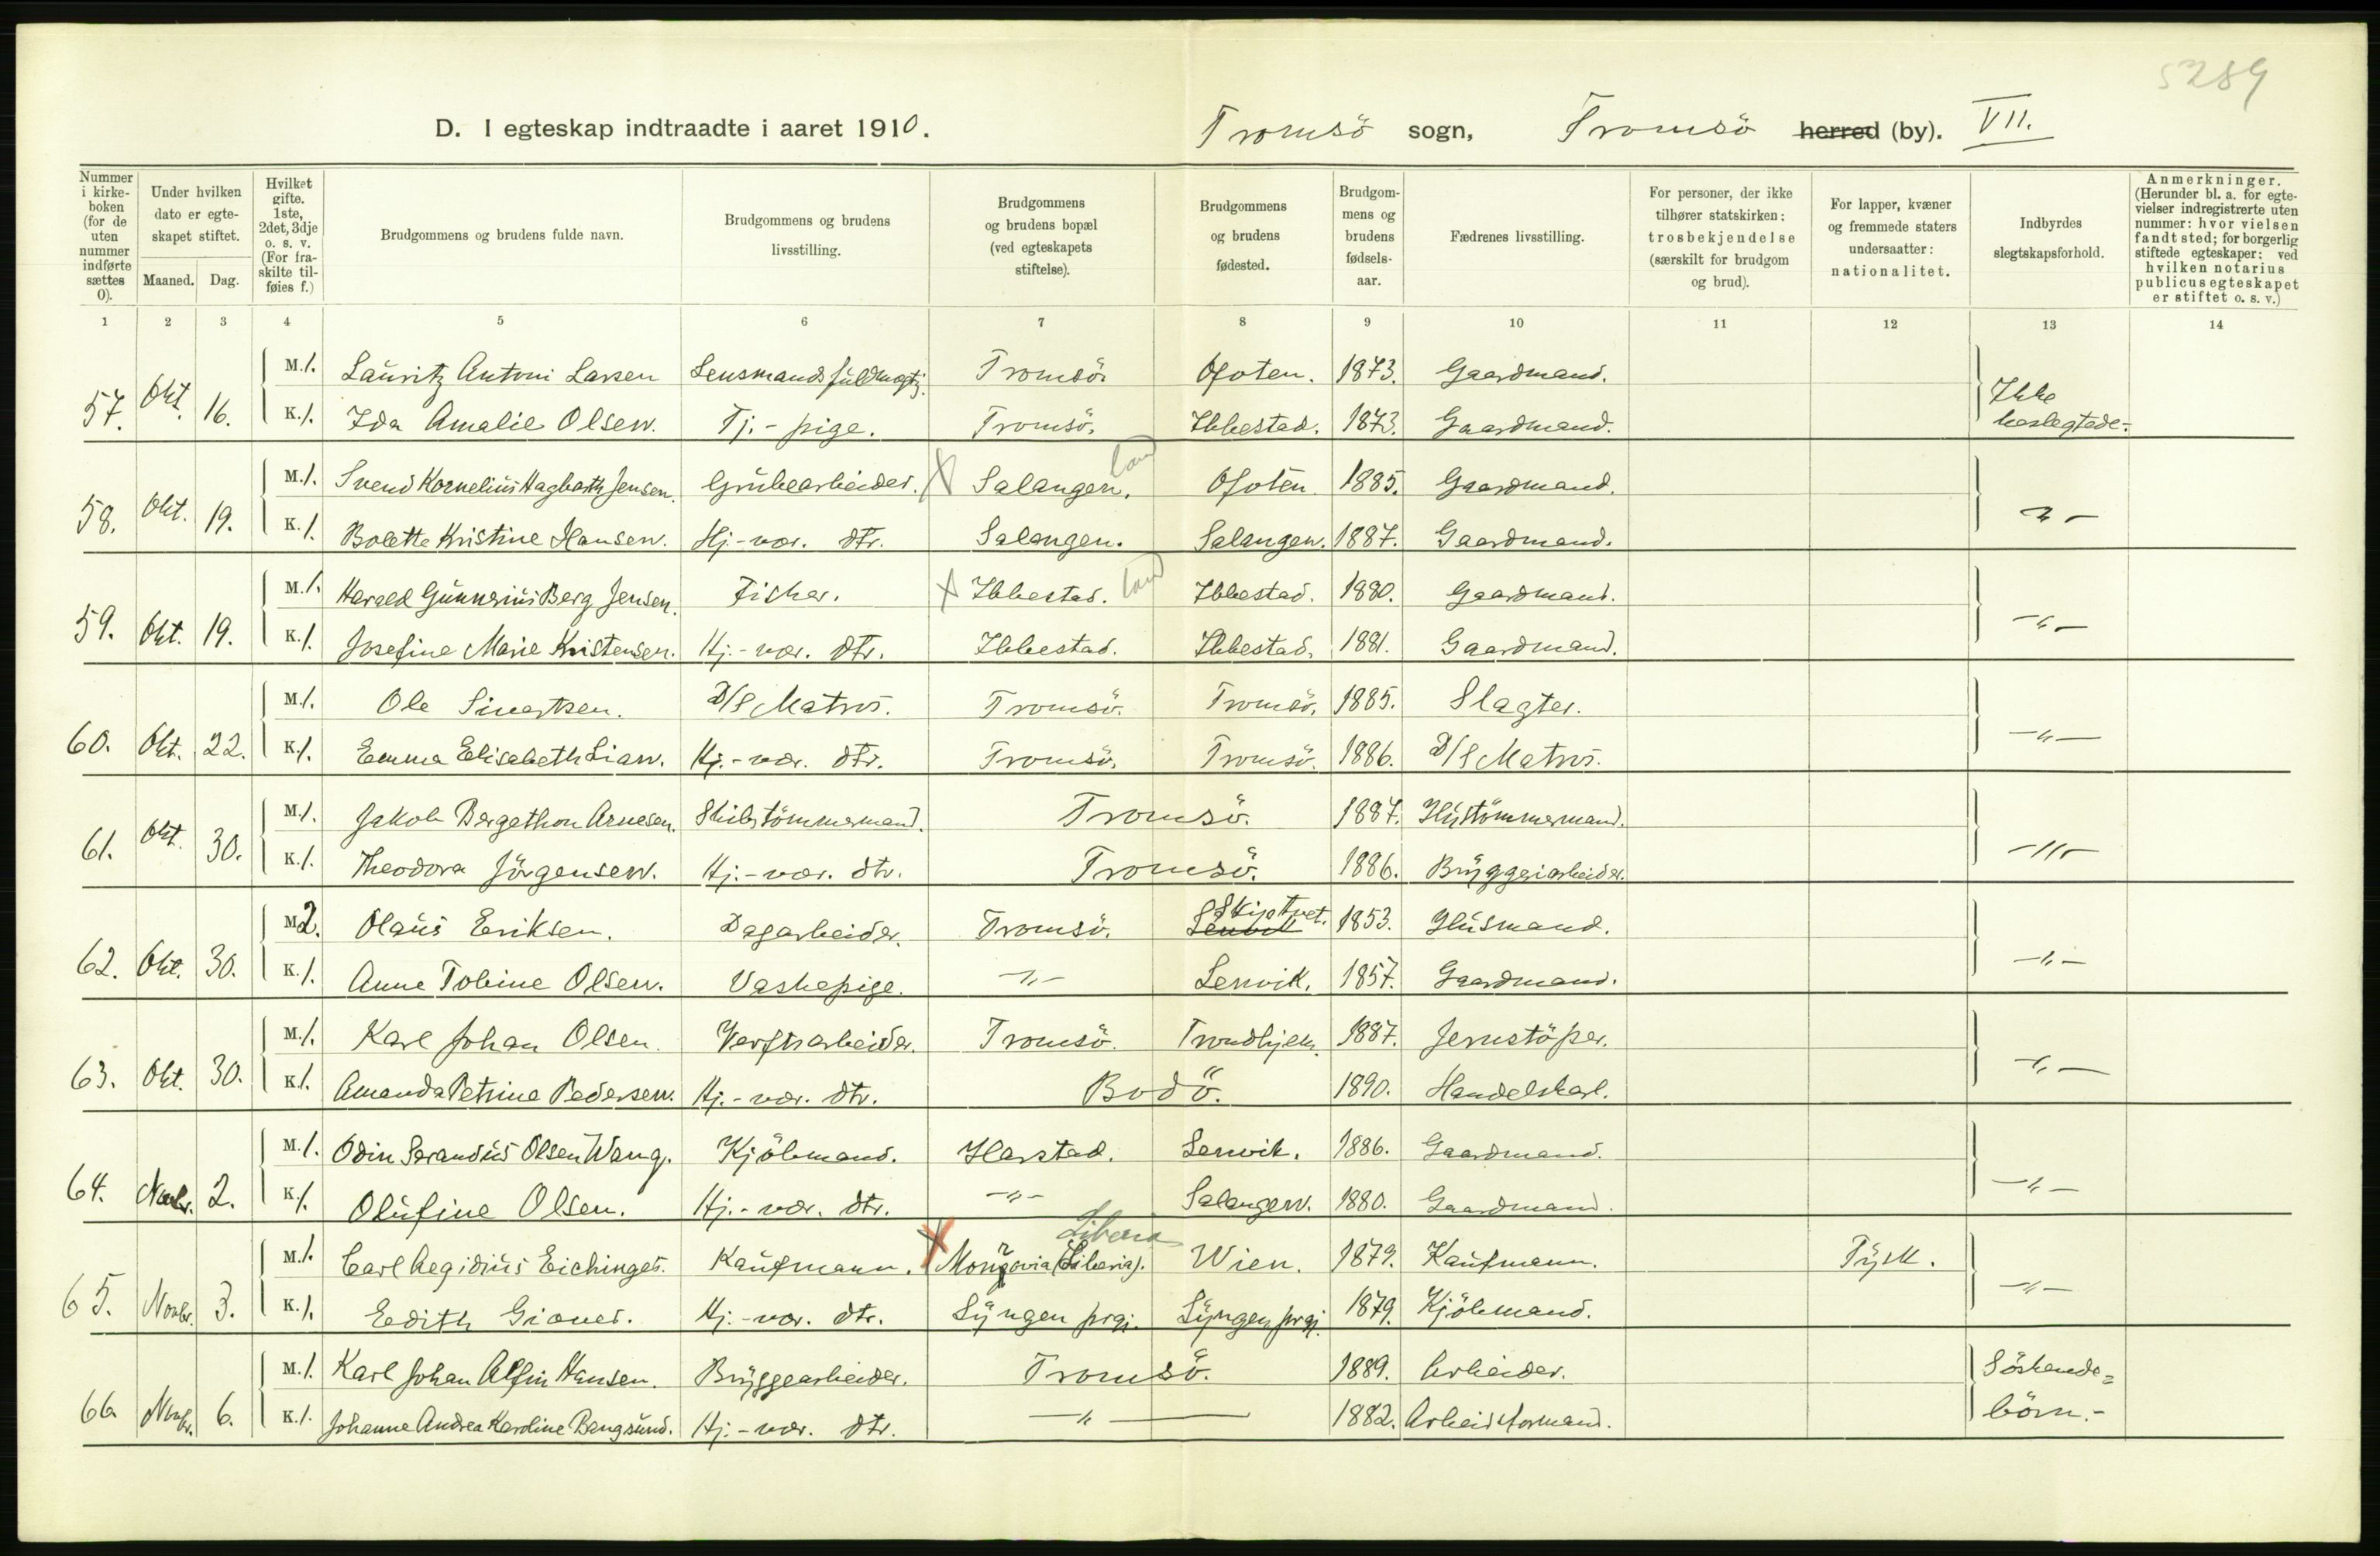 5289
D. I egteskap indtraadte i aaret 1910. Tromsö sogn, Tromsö herred (by). VII.
Nummer i kirke- boken (for de uten nummer indførte sættes 0).
Under hvilken dato er egte- skapet stiftet.
Maaned. Dag.
Hvilket gifte. 1ste, 2det, 3dje o. s. v. (For fra- skilte til- føies f.)
Brudgommens og brudens fulde navn.
Brudgommens og brudens livsstilling.
Brudgommens og brudens bopæl (ved egteskapets stiftelse).
Brudgommens og brudens fødested.
Brudgom- mens og brudens fødsels- aar.
Fædrenes livsstilling.
For personer, der ikke tilhører statskirken: trosbekjendelse (særskilt for brudgom og brud).
For lapper, kvæner og fremmede staters undersaatter: nationalitet.
Indbyrdes slegtskapsforhold.
Anmerkninger. (Herunder bl. a. for egte- vielser indregistrerte uten nummer: hvor vielsen fandt sted; for borgerlig stiftede egteskaper: ved hvilken notarius publicus egteskapet er stiftet o. s. v.)
1 2 3 4 5 6 7 8 9 10 11 12 13 14
M. 1. Lauritz Antoni Larsen Lensmandsfuldmegtj. Tromsö. Ofoten. 1873. Gaardmand.
57. Okt. 16. K. 1. Ida Amalie Olsen. Tj.-pige. Tromsö. Ibbestad. 1873. Gaardmand. Ikke beslegtede.-
M. 1. Svend Kornelius Hagbarth Jensen. Grubearbeider. X Salangen. land Ofoten. 1885. Gaardmand.
58. Okt. 19. K. 1. Bolette Kristine Hansen. Hj.-vær. dtr. Salangen. Salangen. 1887. Gaardmand. -"-
M. 1. Harald Gunnerius Berg Jensen. Fisker. X Ibbestad. land Ibbestad. 1880. Gaardmand.
59. Okt. 19. K. 1. Josefine Marie Kristensen. Hj.-vær. dtr. Ibbestad. Ibbestad. 1881. Gaardmand. -"-
M. 1. Ole Sivertsen. D/S Matros. Tromsö. Tromsö. 1885. Slagter.
60. Okt. 22. K. 1. Emma Elisabeth Lian. Hj.-vær. dtr. Tromsö. Tromsö. 1886. D/S Matros. -"-
M. 1. Jakob Bergethon Arnesen. Skibstömmermand. Tromsö. 1887. Hustömmermand.
61. Okt. 30. K. 1. Theodora Jörgensen. Hj.-vær. dtr. Tromsö. 1886. Bryggeriarbeider. -"-
M. 2. Olaus Eriksen. Dagarbeider. Tromsö. Lenvik Skiptvet. 1853. Husmand.
62. Okt. 30. K. 1. Anne Tobine Olsen. Vaskepige. -"- Lenvik. 1857. Gaardmand. -"-
M. 1. Karl Johan Olsen. Verftsarbeider. Tromsö. Trondhjem. 1887. Jernstöper.
63. Okt. 30. K. 1. Amanda Petrine Pedersen. Hj.-vær. dtr. Bodö. 1890. Handelskarl. -"-
M. 1. Odin Serandus Olsen Wang. Kjöbmand. Harstad. Lenvik. 1886. Gaardmand.
64. Novbr. 2. K. 1. Olufine Olsen. Hj.-vær. dtr. -"- Salangen. 1880. Gaardmand. -"-
M. 1. Carl Aegidius Eichinger. Kaufmann. X Monrovia (Liberia). Liberia Wien. 1879. Kaufmann. Tysk.
65. Novbr. 3. K. 1. Edith Giæver. Hj.-vær. dtr. Lyngen prgj. Lyngen prgj. 1879. Kjöbmand. -"-
M. 1. Karl Johan Alfin Hansen. Bryggearbeider. Tromsö. 1889. Arbeider. Söskende=
66. Novbr. 6. K. 1. Johanne Andrea Karoline Bangsund. Hj.-vær. dtr. -"- 1882. Arbeidsformand. börn.-